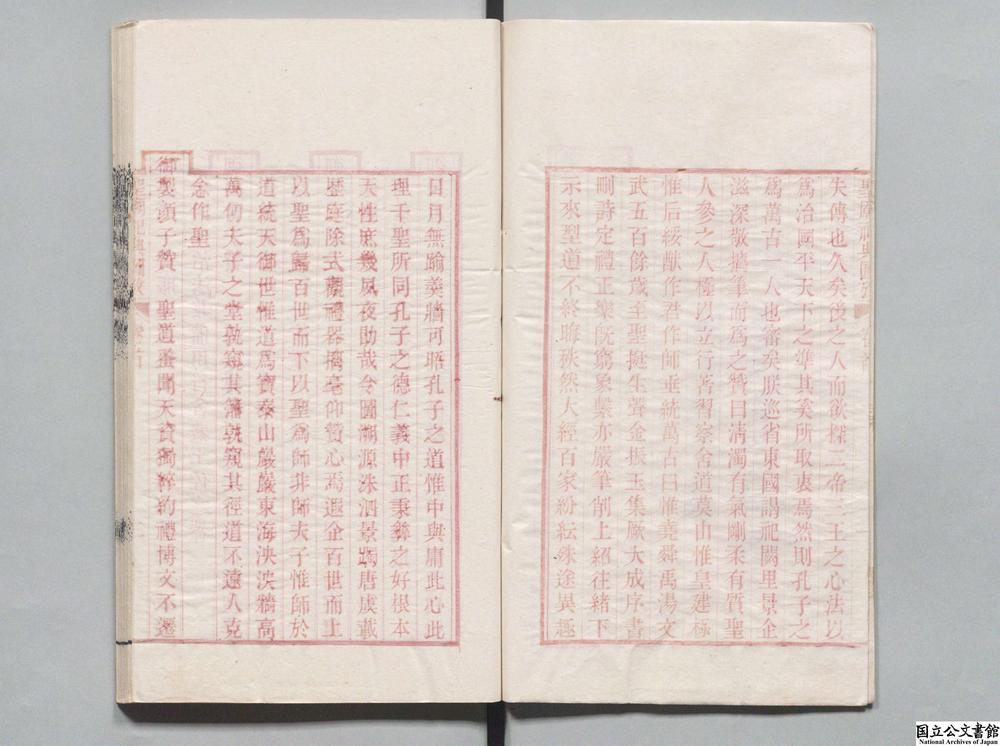 失傳也久矣後之人而欲探二帝三王之心法以
為治國平天下之準其奚所取衷焉然則孔子之
為萬古一人也審矣朕巡省東國謁祀闕里景企
滋深敬摛筆而為之贊曰清濁有氣剛柔有質聖
人參之人極以立行著習察舍道莫由惟皇建極
惟后綏猷作君作師垂統萬古曰惟堯舜禹湯文
武五百餘歲至聖挺生聲金振玉集厥大成序書
刪詩定禮正樂旣窮象繫亦嚴筆削上紹往緒下
示來型道不終晦秩然大經百家紛紜殊途異趣
日月無踰羹牆可晤孔子之道惟中與庸此心此
理千聖所同孔子之德仁義中正秉彝之好根本
天性庶幾夙夜勗哉令圖溯源洙泗景躅唐虞載
歷庭除式觀禮器摛毫仰贊心焉遐企百世而上
以聖為歸百世而下以聖為師非師夫子惟師於
道統天御世惟道為寶泰山巖巖東海泱泱牆高
萬仞夫子之堂孰窺其藩孰窺其徑道不遠人克
念作聖
御製顏子贊 聖道蚤聞天資獨粹約禮博文不遷
国立公文書館
National Archives of Japan